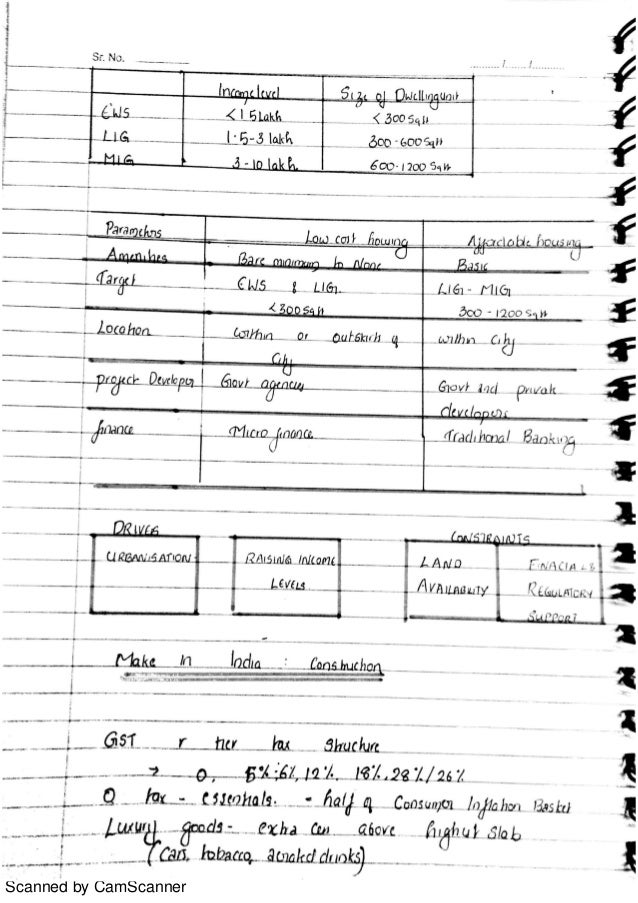 Sr. No.
Income level Size of Dwelling unit
EWS <1.5 Lakh < 300 Sq ft
LIG 1.5-3 lakh 300-600 Sq ft
MIG 3-10 lakh 600-1200 Sq ft
Parameters Low cost housing Affordable housing
Amenities Bare minimum to None Basic
Target EWS & LIG LIG - MIG
<300 Sq ft 300 - 1200 Sq ft
Location within or outskirts of within City
City
project Developer Govt agencies Govt and private
developers
finance Micro finance Traditional Banking
DRIVES CONSTRAINTS
URBANISATION RAISING INCOME LAND FINACIAL &
LEVELS AVAILABILITY REGULATORY
SUPPORT
Make in India : Construction
GST r tier tax structure
→ 0, 5%;6%, 12%, 18%, 28%/26%
0 tax - essentials. - half of Consumer Inflation Basket
Luxury goods - extra cess above highest slab
(cars, tobacco, aerated drinks)
Scanned by CamScanner